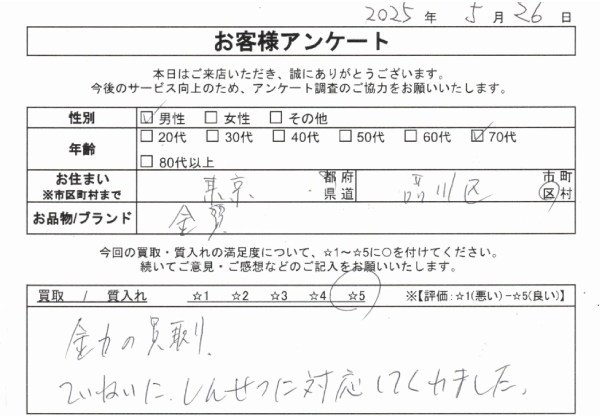 2025 年 5 月 26 日
お客様アンケート
本日はご来店いただき、誠にありがとうございます。
今後のサービス向上のため、アンケート調査のご協力をお願いいたします。
性別 ☑男性 □女性 □その他
年齢 □20代 □30代 □40代 □50代 □60代 ☑70代
□80代以上
お住まい 東京 都府 品川区 市町
※市区町村まで 県道 区村
お品物/ブランド 金貨
今回の買取・質入れの満足度について、☆1～☆5に○を付けてください。
続いてご意見・ご感想などのご記入をお願いいたします。
買取 / 質入れ ☆1 ☆2 ☆3 ☆4 ☆5 ※【評価:☆1(悪い)-☆5(良い)】
の買取り、
ていねいに、しんせつに対応してくれました。